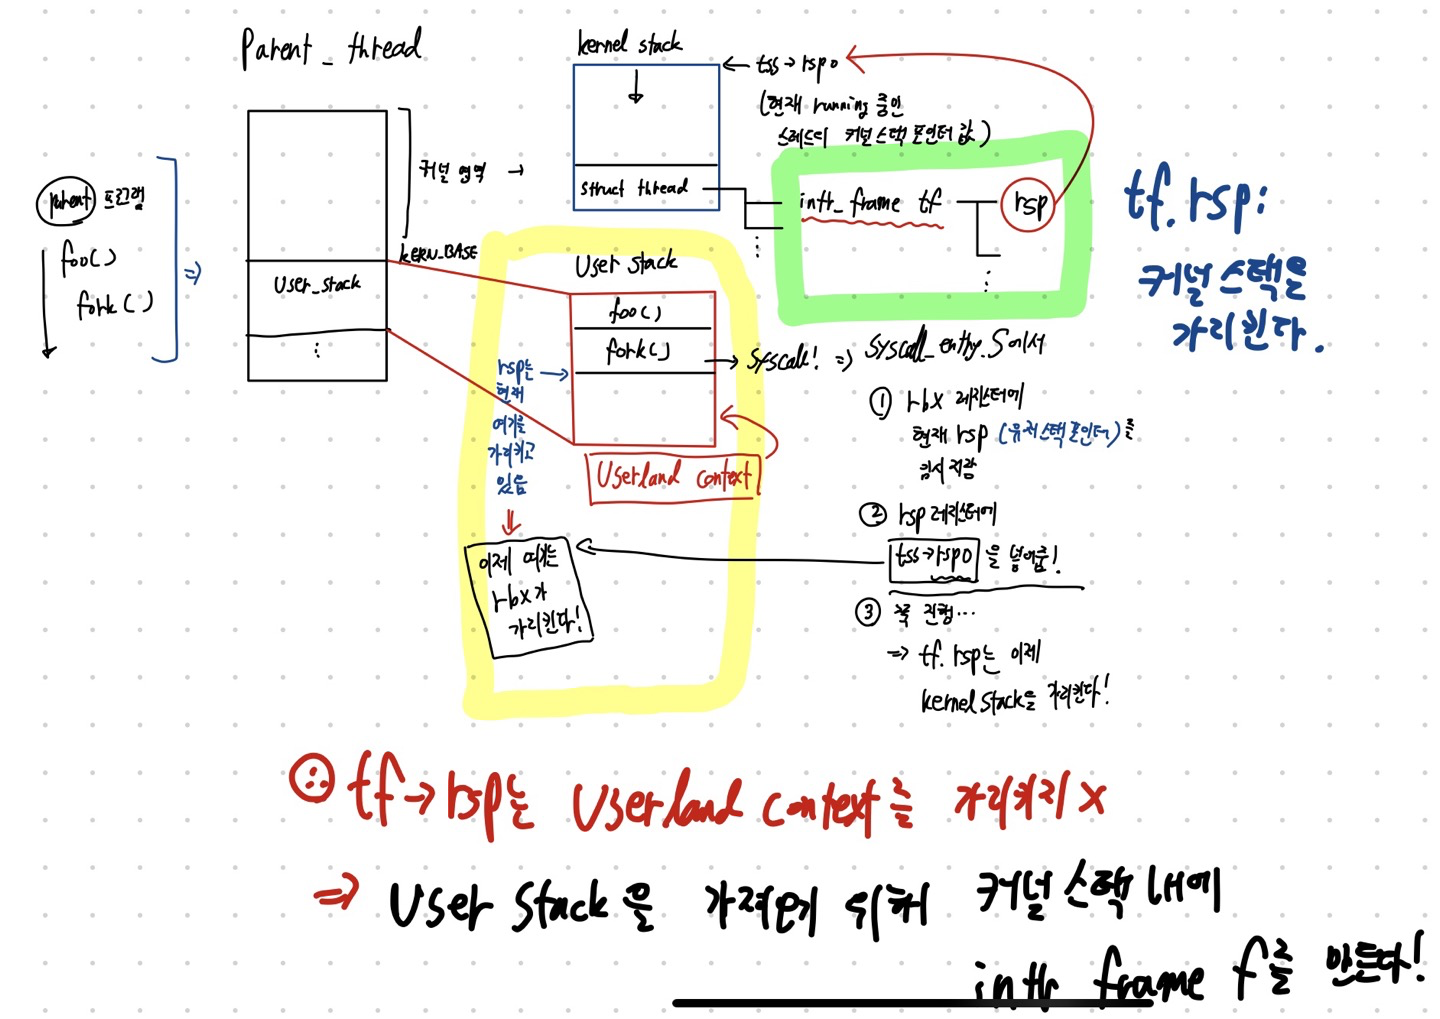 Parent_thread
kernel stack
← tss→rsp0
(현재 running 중인
스레드의 커널스택 포인터 값)
parent 프로그램
foo()
fork()
⇒
커널 영역 →
KERN_BASE
User_stack
⋮
struct thread
intr_frame tf
rsp
⋮
⋮
tf.rsp:
커널 스택을
가리킨다.
User stack
foo()
fork()
→ Syscall! ⇒ Syscall_entry.S에서
rsp는 →
현재
여기를
가리키고
있음
Userland context
⇓
이제 여기는
rbx가
가리킨다!
① rbx 레지스터에
현재 rsp (유저스택포인터)를
임시저장
② rsp 레지스터에
tss→rsp0 을 넣어줌!
③ 쭉 진행...
⇒ tf.rsp는 이제
kernel stack을 가리킨다!
∴ tf→rsp는 Userland context를 가리키지 X
⇒ User stack을 가져오기 위해 커널스택 내에
intr frame f를 만든다!